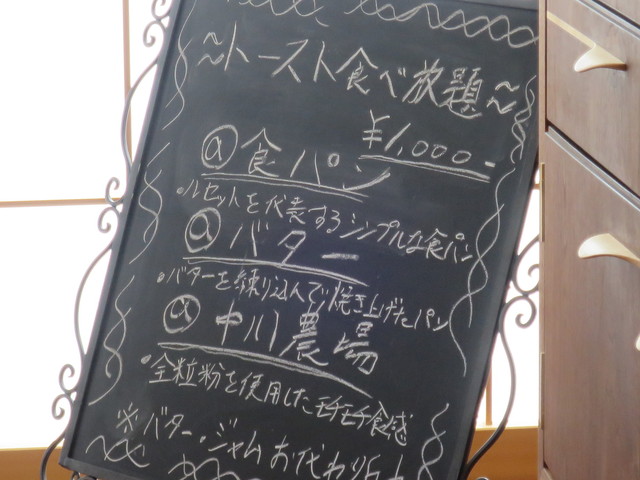 〜トースト食べ放題〜
¥1,000-
ⓐ食パン
・ルセットを代表するシンプルな食パン
ⓐバター
・バターを練り込んで焼き上げたパン
ⓐ中川農場
・全粒粉を使用したモチモチ食感
※バター・ジャムお代わり